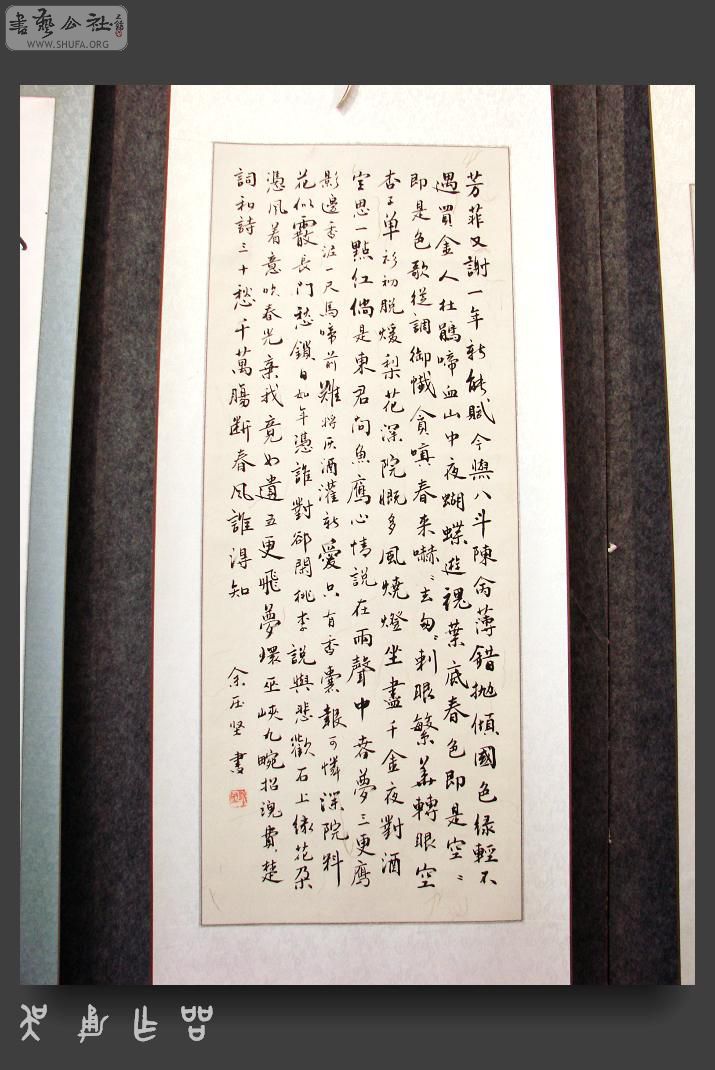 書藝公社
WWW.SHUFA.ORG
芳菲又謝一年新能賦今輿八斗陳奩薄錯拋傾國色綠輕不
遇買金人杜鵑啼血山中夜蝴蝶遊魂葉底春色即是空〻
即是色歌從調御懺貪嗔春来嚇〻去匆〻刺眼繁華轉眼空
杏子單衫初脫煖梨花深院慨多風燒燈坐盡千金夜對酒
空思一點紅倘是東君問魚鴈心情說在雨聲中春夢三更鴈
影邊香泥一尺馬啼前難將灰酒灌新愛只有香囊報可憐深院料
花似霰長門愁鎖日如年憑誰對卻閒桃李說與悲歡石上緣花朵
憑風着意吹春光棄我竟如遺五更飛夢環巫峽九畹招魂費楚
詞和詩三十愁千萬腸斷春風誰得知
書